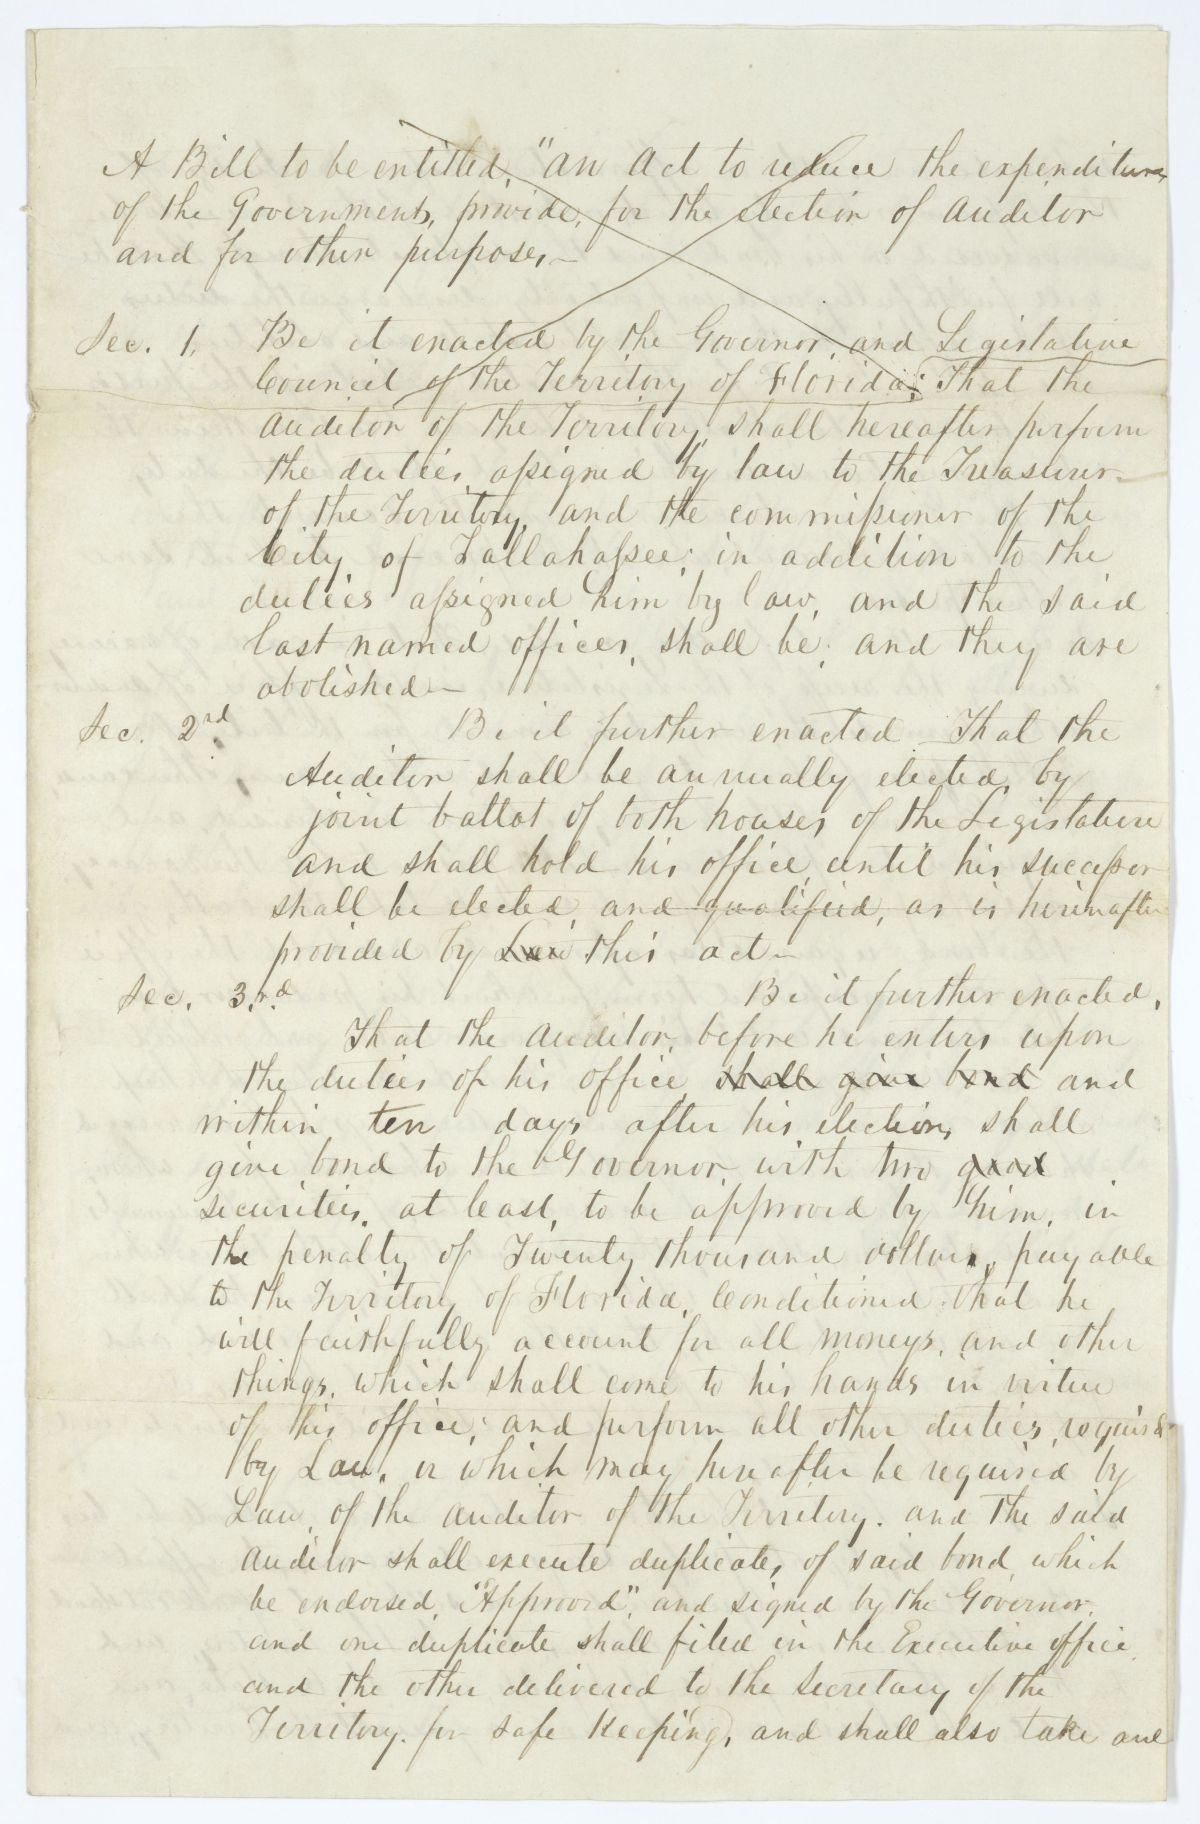 A Bill to be entitled, "an Act to reduce the expenditures
of the Government, provide, for the election of Auditor
and for other purposes,—
Sec. 1. Be it enacted by the Governor, and Legislative
Council of the Territory of Florida; That the
Auditor of the Territory, shall hereafter perform
the duties assigned by law to the Treasurer
of the Territory, and the commissioner of the
City of Tallahassee; in addition to the
duties assigned him by law, and the said
last named offices, shall be, and they are
abolished—
Sec. 2nd Be it further enacted. That the
Auditor shall be annually elected, by
joint ballot of both houses, of the Legislature
and shall hold his office, until his successor
shall be elected, and qualified, as is hereinafter
provided by Law this act—
Sec. 3.rd Be it further enacted,
That the Auditor, before he enters upon
the duties of his office shall give bond and
within ten days after his election, shall
give bond to the Governor, with two good
securities, at least, to be approved by him, in
the penalty of Twenty thousand dollars, payable
to the Territory of Florida, Conditioned that he
will faithfully account for all moneys, and other
things, which shall come to his hands in virtue
of his office; and perform all other duties, required
by Law, or which may hereafter be required by
Law, of the Auditor of the Territory. and the said
Auditor shall execute duplicates, of said bond, which
be endorsed, "Approved", and signed by the Governor,
and one duplicate shall filed in the Executive office,
and the other delivered to the Secretary of the
Territory. for safe keeping, and shall also take and